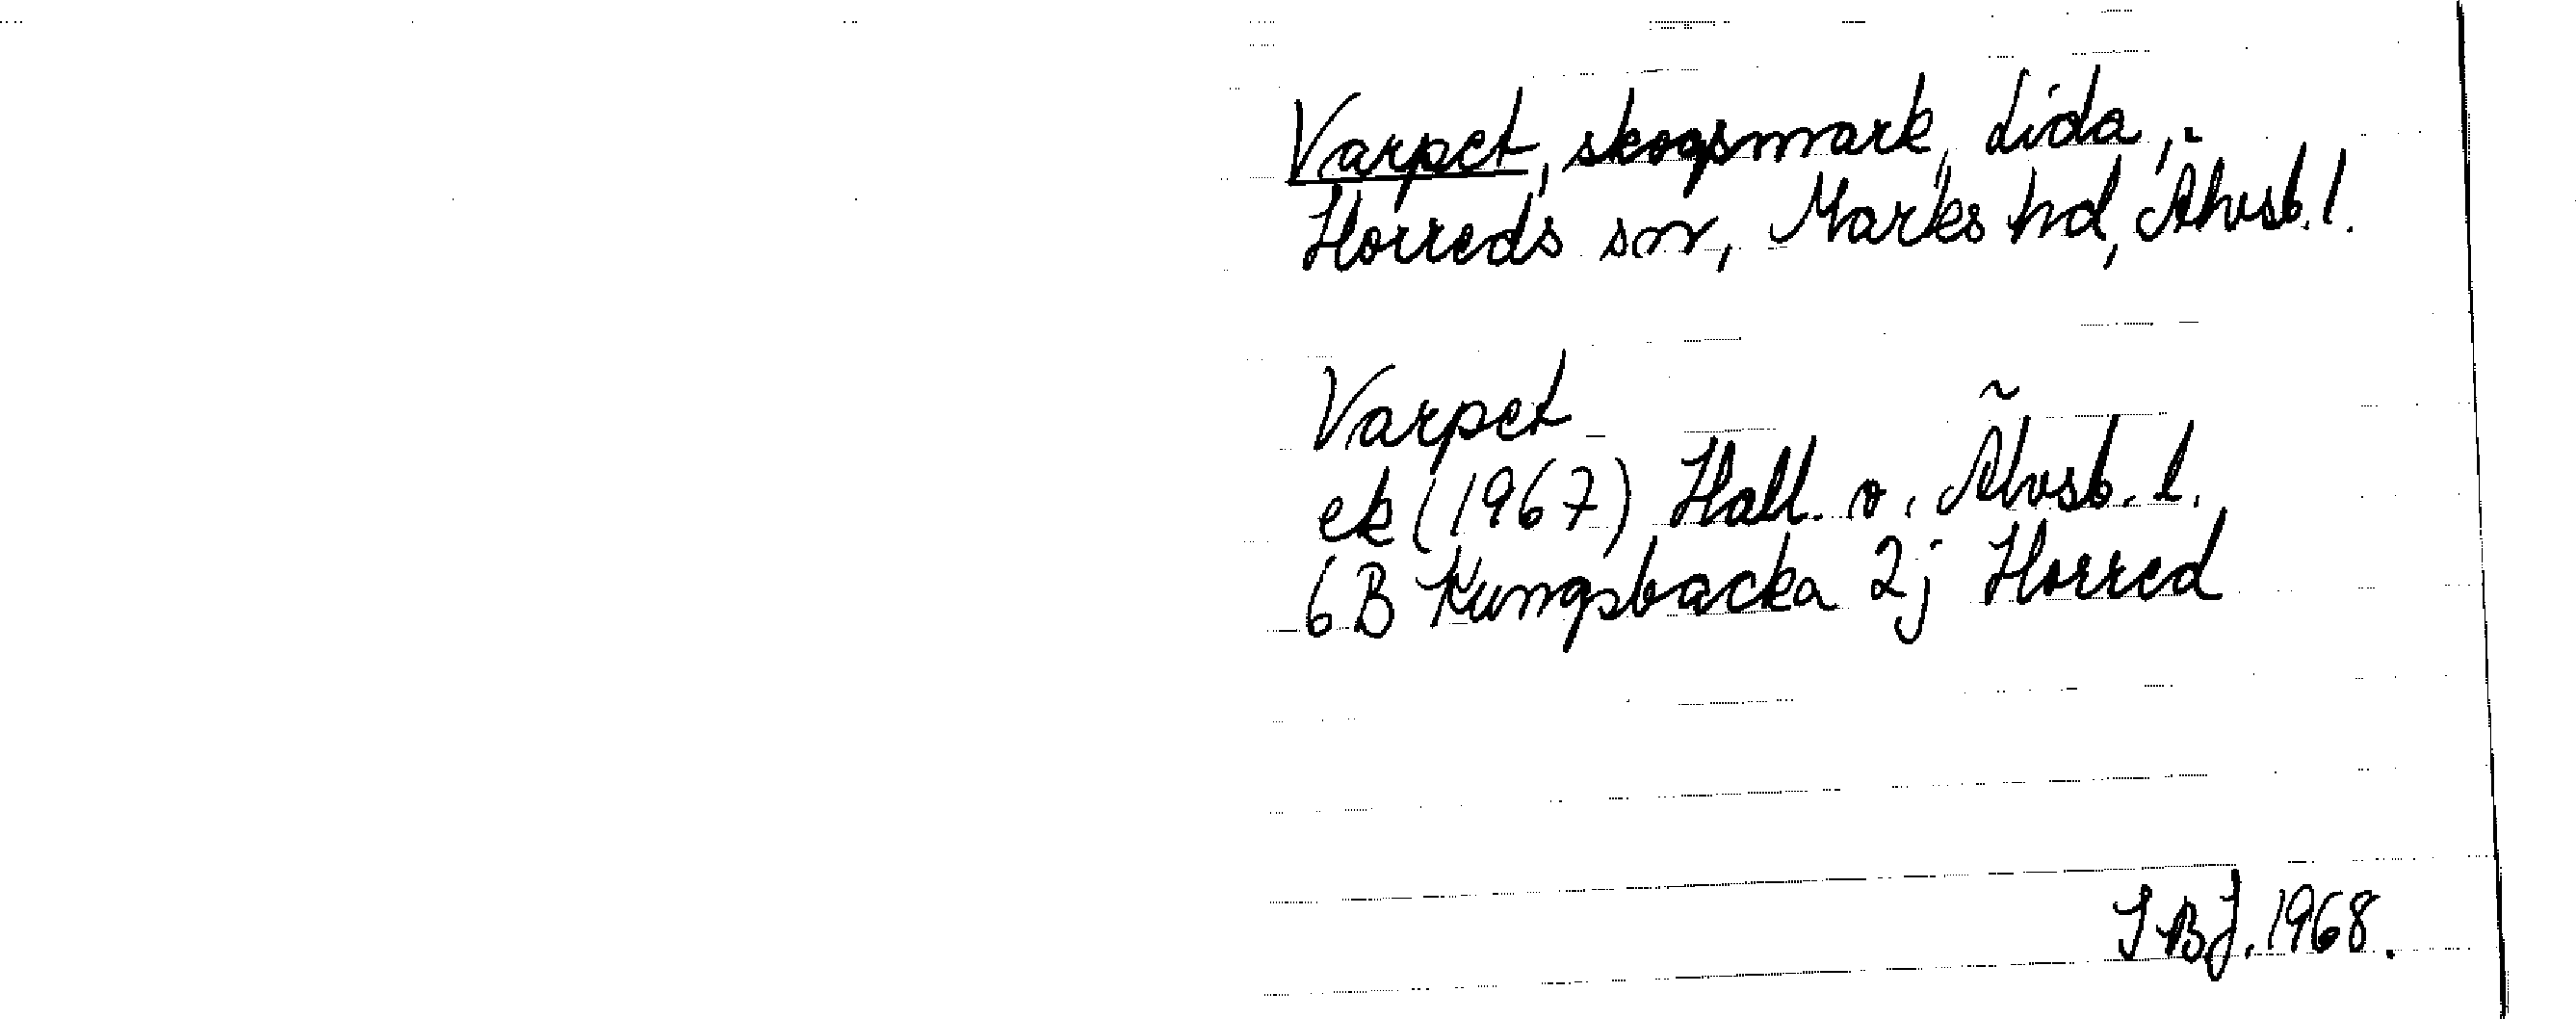 Varpet, skogsmark, Lida,
Horreds sn, Marks hd, Älvsb. l.
Varpet
ek (1967) Hall. o. Älvsb. l.
6B Kungsbacka 2j Horred
IBJ. 1968.